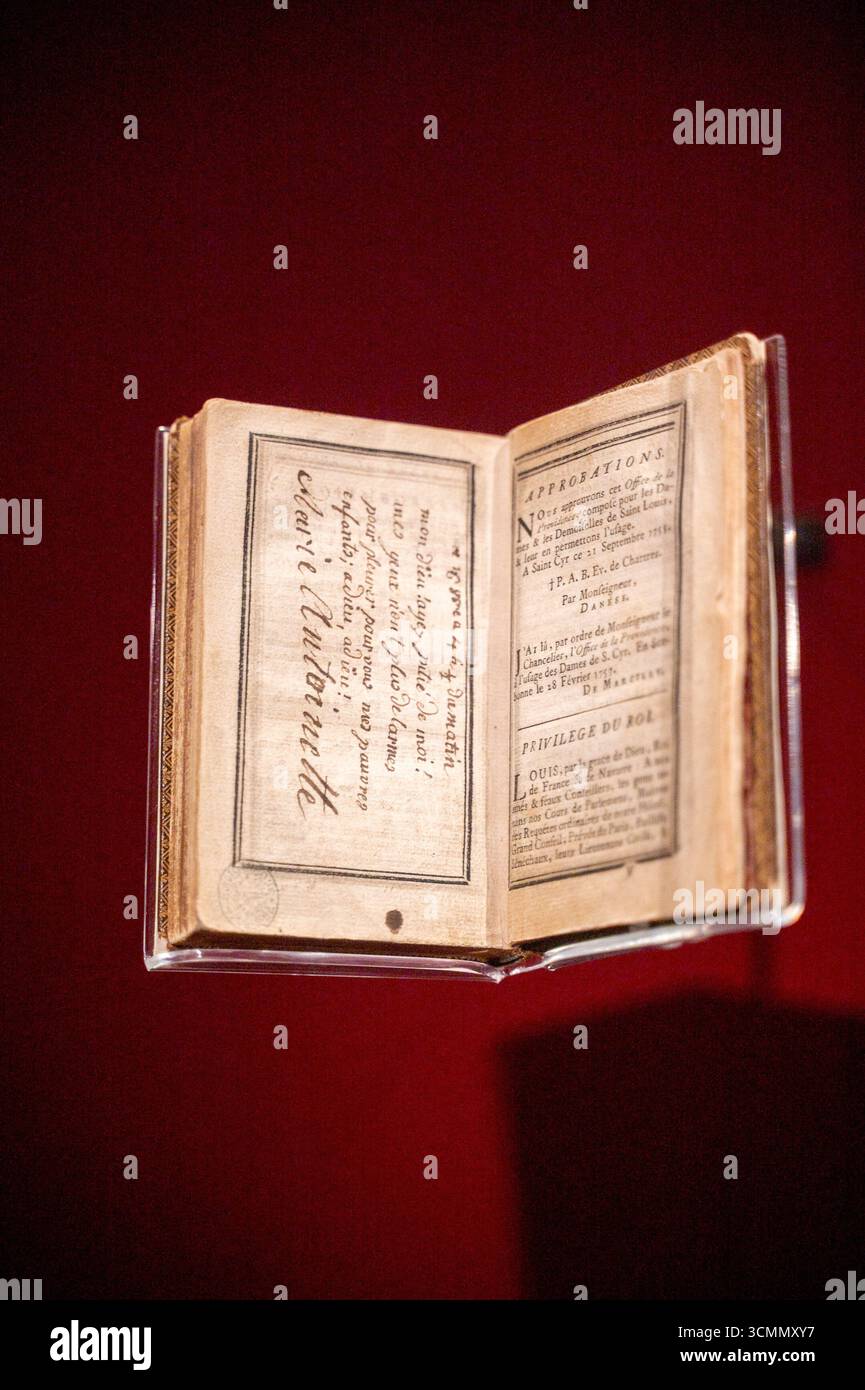 ce 16 8bre a 4 h ½ du matin
mon dieu ! ayez pitié de moi !
mes yeux n'ont plus de larmes
pour pleurer pour vous mes pauvres
enfants ; adieu, adieu !
Marie Antoinette
APPROBATIONS.
NOUS approuvons cet Office de la
Providence, composé pour les Da-
mes & les Demoiselles de Saint Louis,
& leur en permettons l'usage.
A Saint Cyr ce 21 Septembre 1758.
† P. A. B. Ev. de Chartres.
Par Monseigneur,
DANESE.
J'AI lû, par ordre de Monseigneur le
Chancelier, l'Office de la Providence,
à l'usage des Dames de S. Cyr. En Sor-
bonne le 28 Février 1757.
DE MARCILLY.
PRIVILEGE DU ROI.
LOUIS, par la grace de Dieu, Roi
de France & de Navarre : A nos
amés & féaux Conseillers, les gens te-
nans nos Cours de Parlement, Maîtres
des Requêtes ordinaires de notre Hôtel,
Grand Conseil, Prévôt de Paris, Baillifs,
Sénéchaux, leurs Lieutenans Civils, &
alamy
a
alamy
Image ID: 3CMMXY7
www.alamy.com